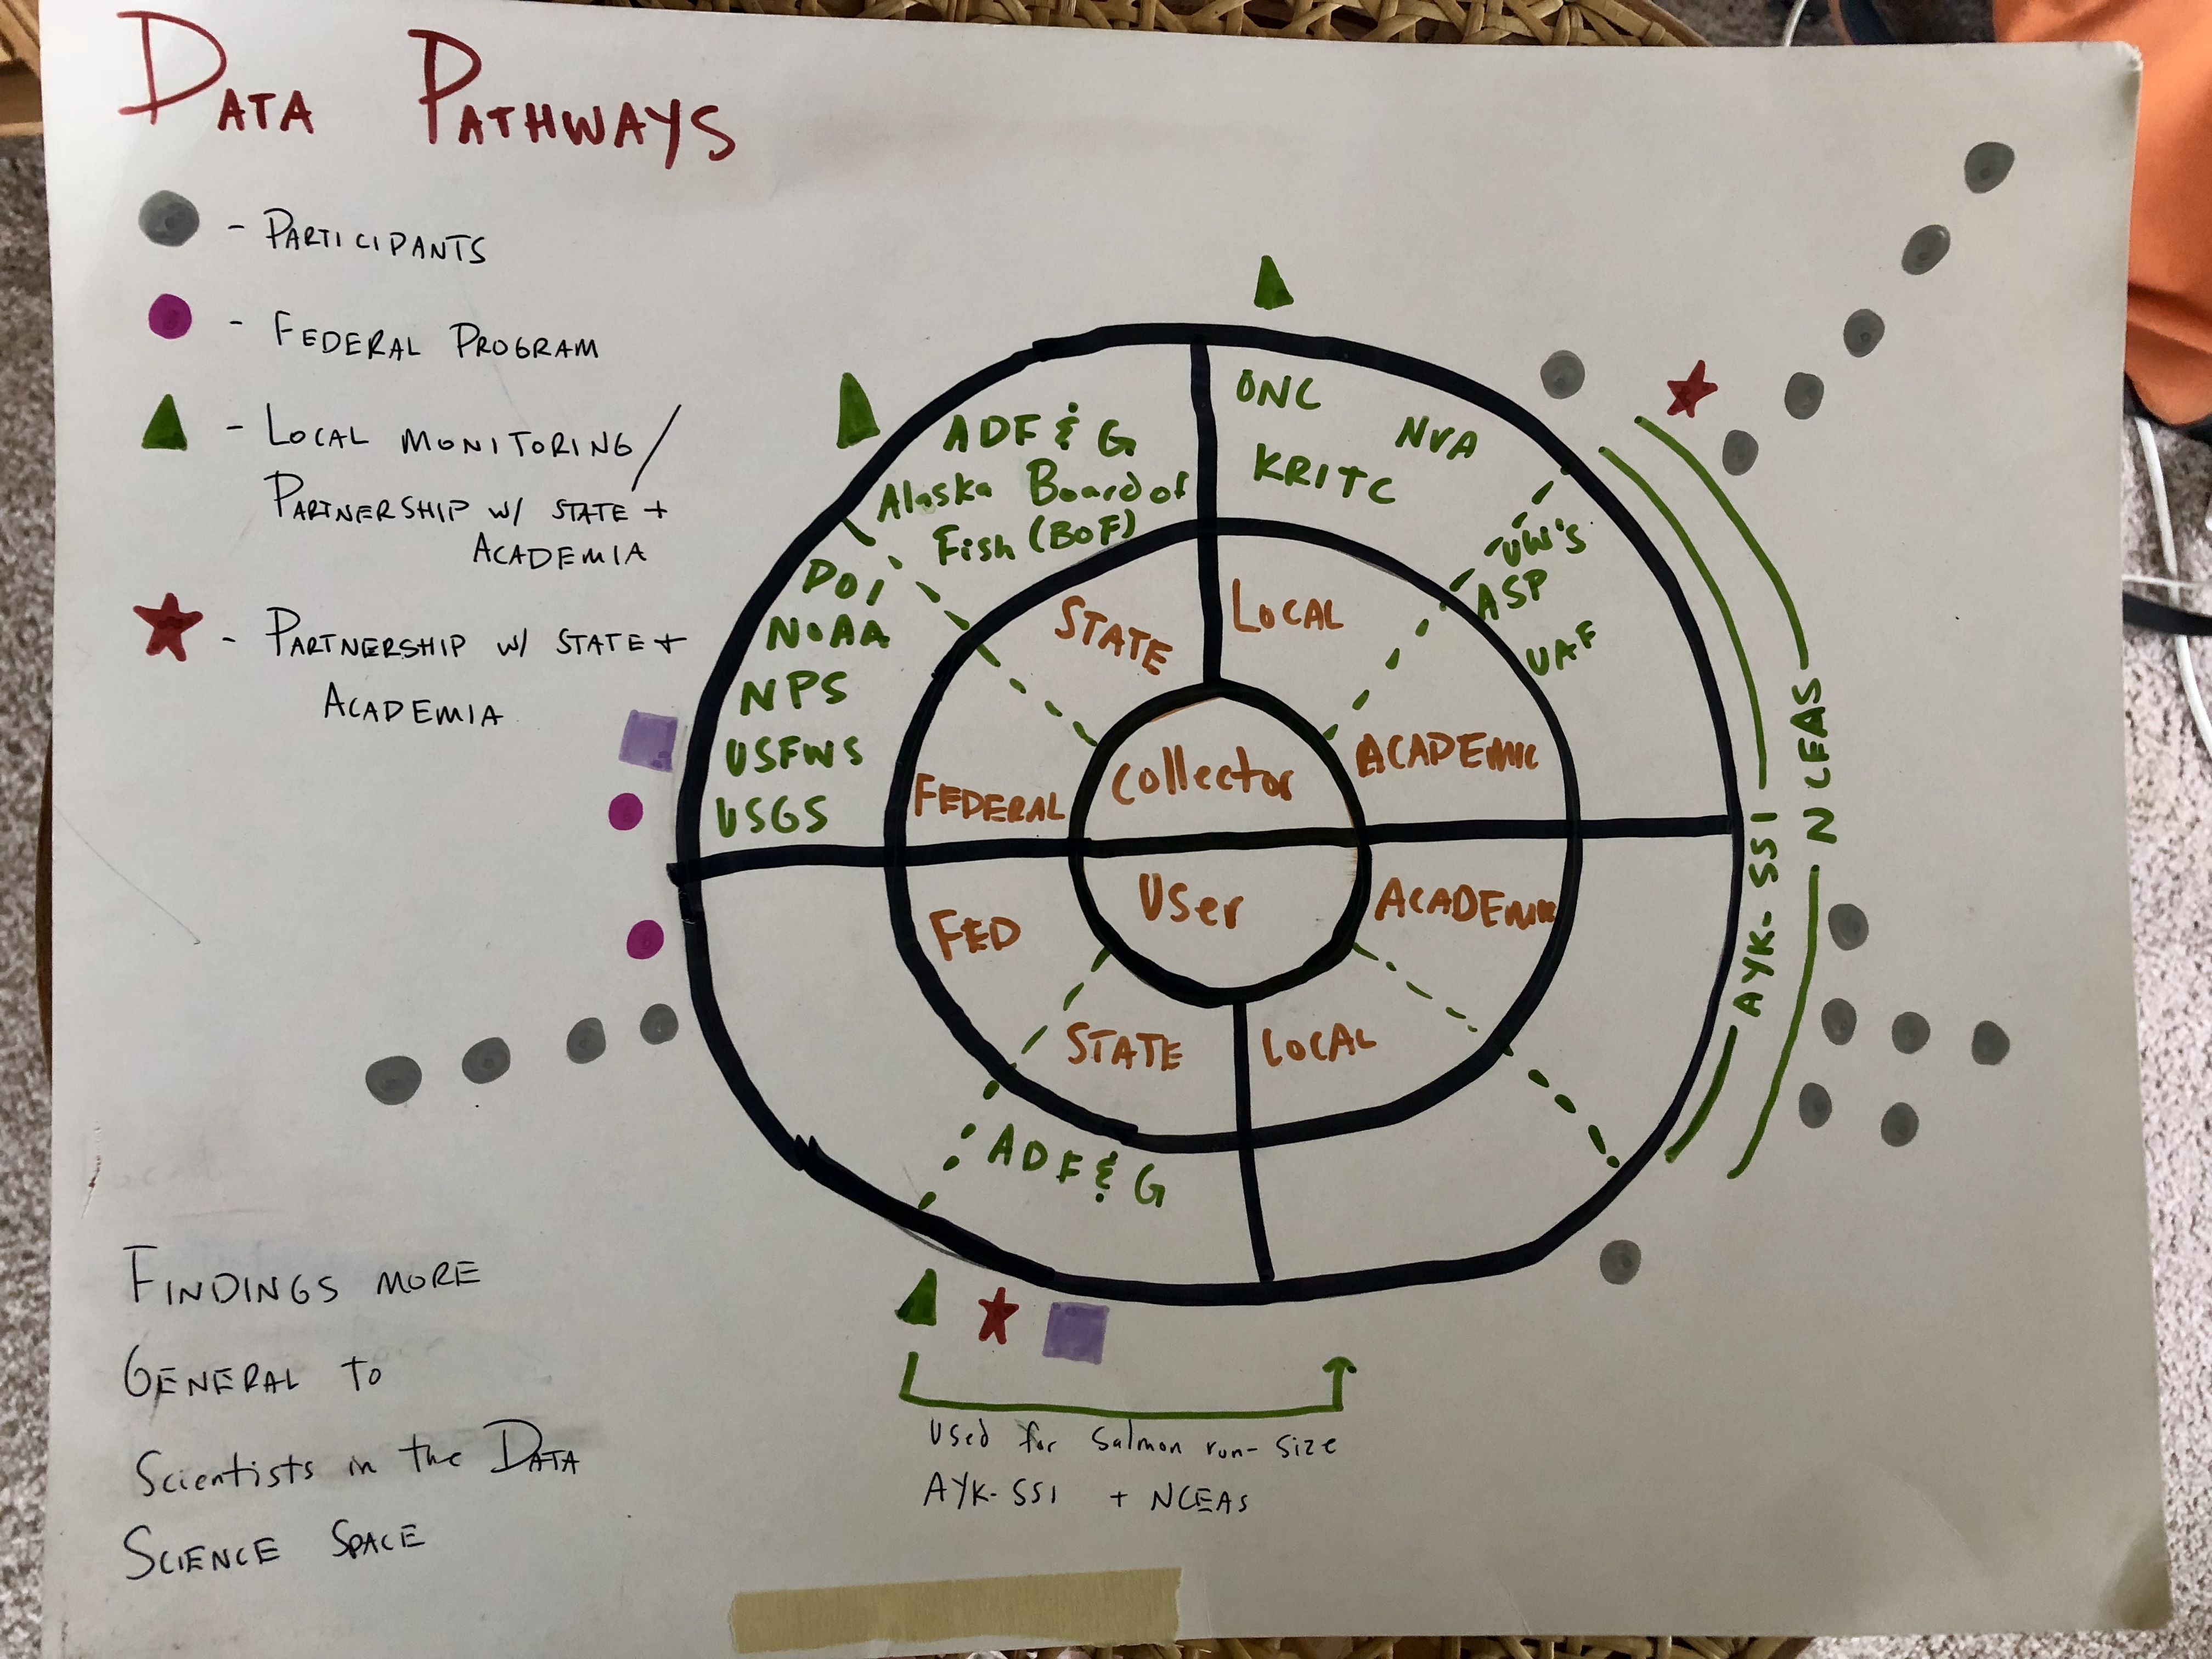 DATA PATHWAYS
- PARTICIPANTS
- FEDERAL PROGRAM
- LOCAL MONITORING/
PARTNERSHIP W/ STATE +
ACADEMIA
- PARTNERSHIP W/ STATE +
ACADEMIA
ADF & G
Alaska Board of
Fish (BOF)
DOI
NOAA
NPS
USFWS
USGS
ONC
NVA
KRITC
UW's
ASP
UAF
STATE
LOCAL
FEDERAL
ACADEMIC
Collector
User
FED
ACADEMIC
STATE
LOCAL
ADF & G
AYK-SSI
NCEAS
Used for Salmon run-size
AYK-SSI + NCEAS
FINDINGS MORE
GENERAL TO
Scientists in the DATA
SCIENCE SPACE